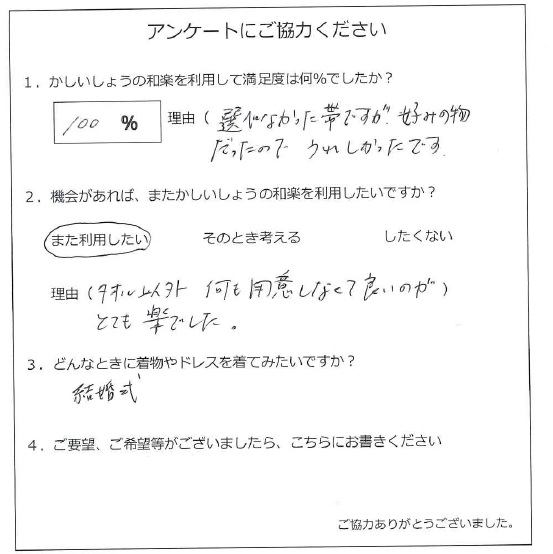 アンケートにご協力ください
1．かしいしょうの和楽を利用して満足度は何％でしたか？
100 %
理由（選べなかった帯ですが、好みの物
だったので うれしかったです。
2．機会があれば、またかしいしょうの和楽を利用したいですか？
また利用したい そのとき考える したくない
理由（タオル以外 何も用意しなくて良いのが）
とても楽でした。
3．どんなときに着物やドレスを着てみたいですか？
結婚式
4．ご要望、ご希望等がございましたら、こちらにお書きください
ご協力ありがとうございました。